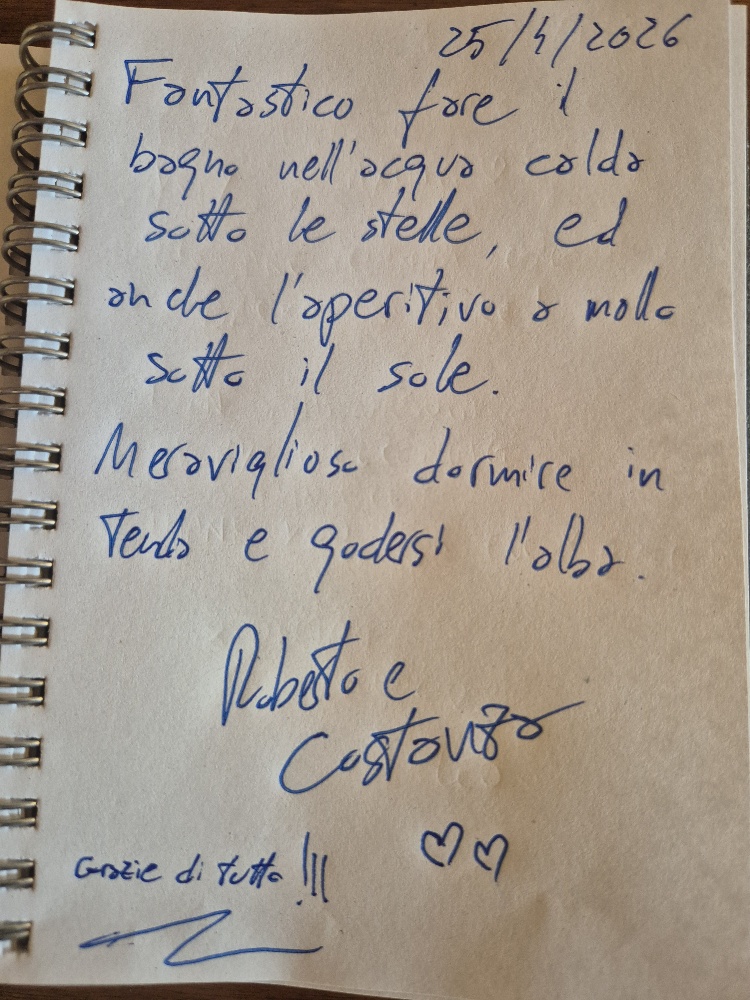 25/4/2026
Fantastico fare il
bagno nell'acqua calda
sotto le stelle, ed
anche l'aperitivo a mollo
sotto il sole.
Meraviglioso dormire in
tenda e godersi l'alba.
Roberto e
Costanza
Grazie di tutto!!!